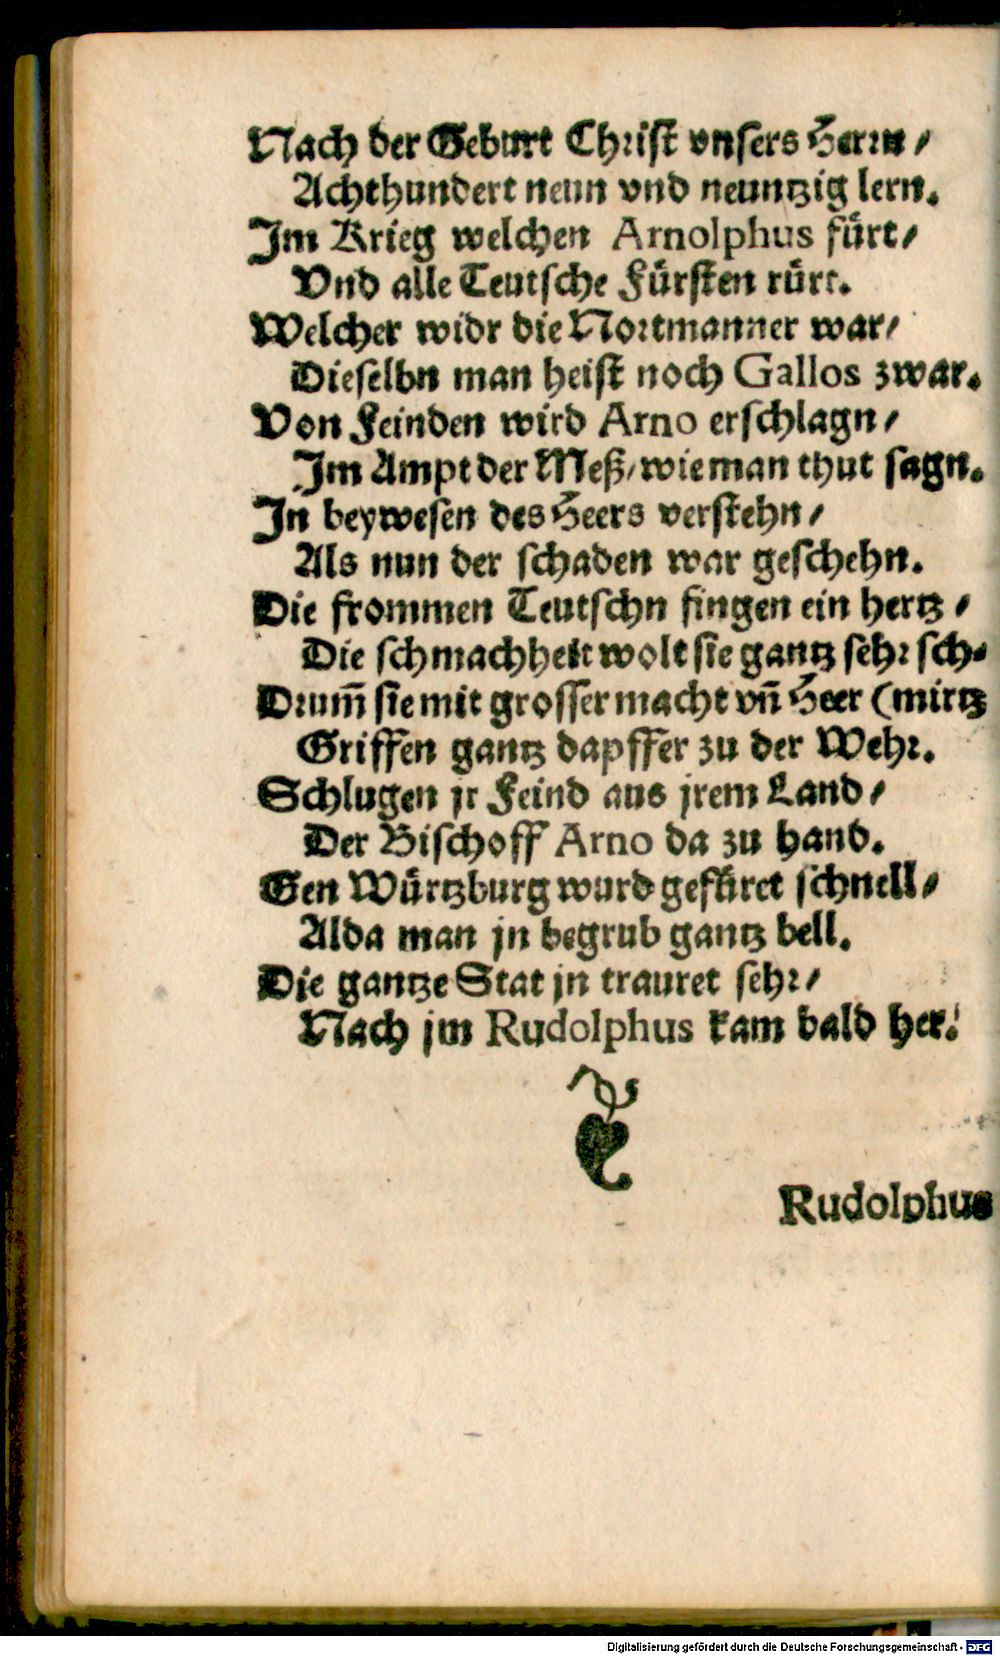 Nach der Geburt Christ vnsers Herrn /
Achthundert neun vnd neuntzig lern.
Im Krieg welchen Arnolphus fürt /
Vnd alle Teutsche Fürsten rürt.
Welcher widr die Nortmanner war /
Dieselbn man heist noch Gallos zwar.
Von Feinden wird Arno erschlagn /
Im Ampt der Meß / wie man thut sagn.
In beywesen des Heers verstehn /
Als nun der schaden war geschehn.
Die frommen Teutschn fingen ein hertz /
Die schmachheit wolt sie gantz sehr sch-
Drum̃ sie mit grosser macht vñ Heer (mirtz
Griffen gantz dapffer zu der Wehr.
Schlugen jr Feind aus jrem Land /
Der Bischoff Arno da zu hand.
Gen Würtzburg wurd gefüret schnell /
Alda man jn begrub gantz bell.
Die gantze Stat jn trauret sehr /
Nach jm Rudolphus kam bald her.
Rudolphus
Digitalisierung gefördert durch die Deutsche Forschungsgemeinschaft - DFG